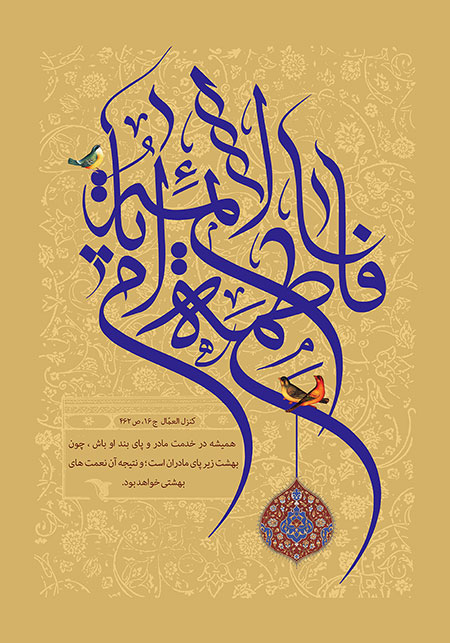 فاطمة ام
کنزل العمّال ج۱۶، ص۴۶۲
همیشه در خدمت مادر و پای بند او باش ، چون
بهشت زیر پای مادران است؛ و نتیجه آن نعمت های
بهشتی خواهد بود.